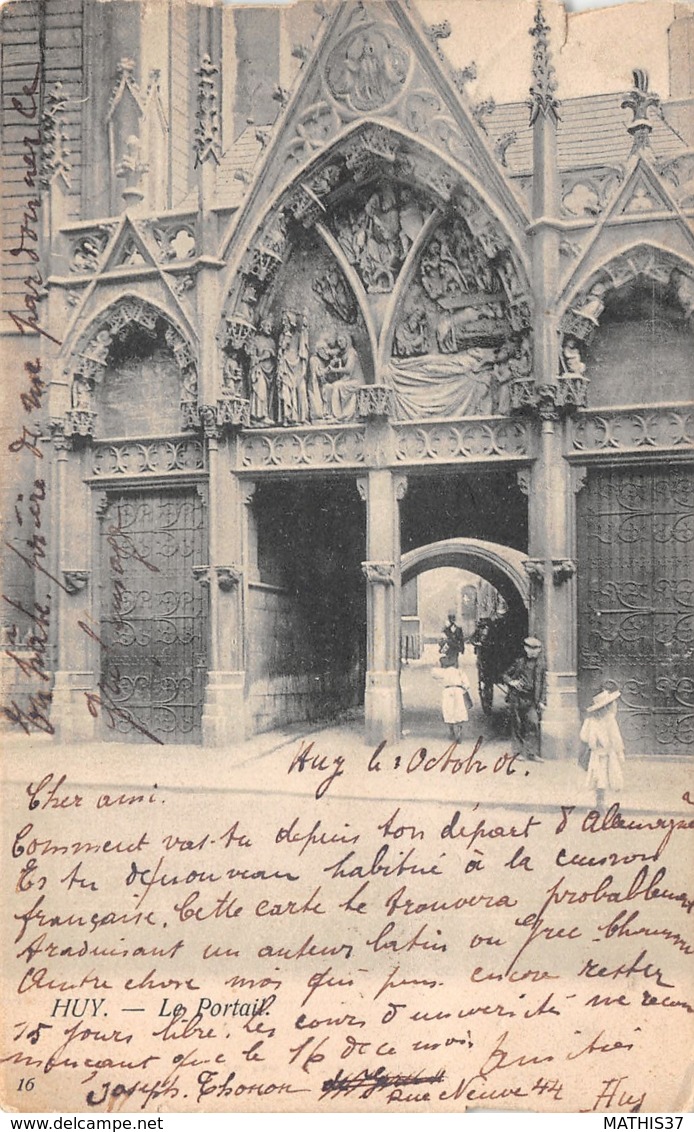 Huy le 1 Octobr. 01.
Cher ami.
Comment vas-tu depuis ton départ d'Allemagne
Es tu de nouveau habitué à la cuisson
française. Cette carte te trouvera probablement
traduisant un auteur latin ou grec.
Autre chose moi qui peux encore rester
HUY. — Le Portail.
15 jours libre. les cours d'université ne recom
mençant que le 16 de ce mois. Amitiés
Joseph. Thonon Rue Neuve 44 Huy
16
prière de me pardonner
MATHIS37